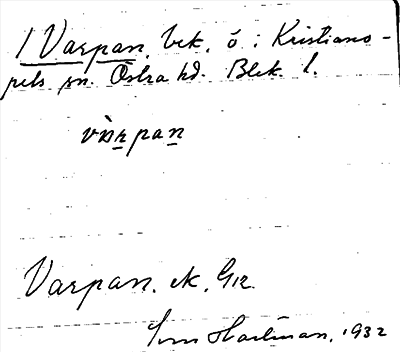 1 Varpan, bek. ö i Kristiano-
pels sn. Östra hd. Blek. l.
vàrpan
Varpan. ek. G12
Hartman, 1932